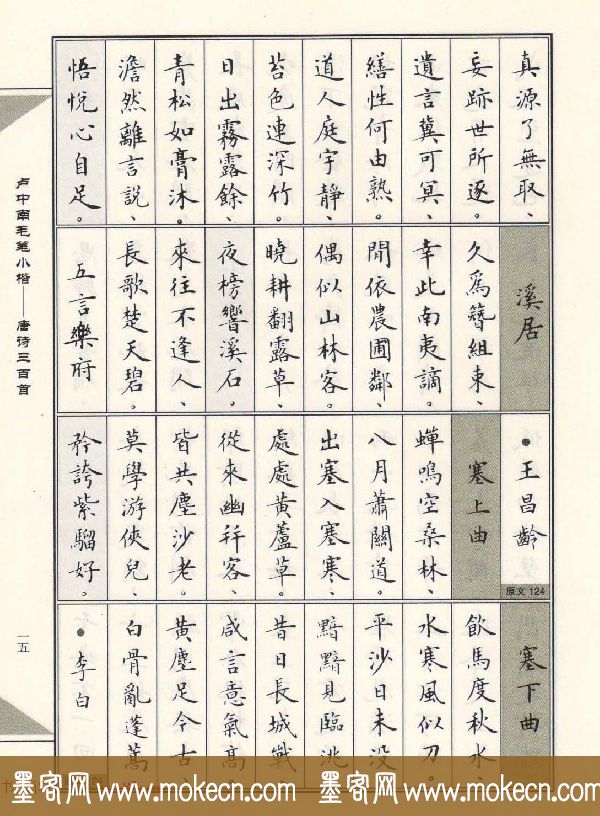 真源了無取、
妄跡世所逐。
遺言冀可冥、
繕性何由熟。
道人庭宇静、
苔色連深竹。
日出霧露餘、
青松如膏沐。
澹然離言説、
悟悦心自足。
溪居
久爲簪組束、
幸此南夷謫。
閒依農圃鄰、
偶似山林客。
曉耕翻露草、
夜榜響溪石。
來往不逢人、
長歌楚天碧。
五言樂府
•王昌齡
原文124
塞上曲
蟬鳴空桑林、
八月蕭關道。
出塞入塞寒、
處處黄蘆草。
從來幽并客、
皆共塵沙老。
莫學游俠兒、
矜誇紫騮好。
塞下曲
飲馬度秋水、
水寒風似刀。
平沙日未没
黯黯見臨洮
昔日長城戰、
咸言意氣高
黄塵足今古、
白骨亂蓬蒿
•李白
卢中南毛笔小楷——唐诗三百首
一五
墨客网 www.mokecn.com 墨客网 www.mokecn.com